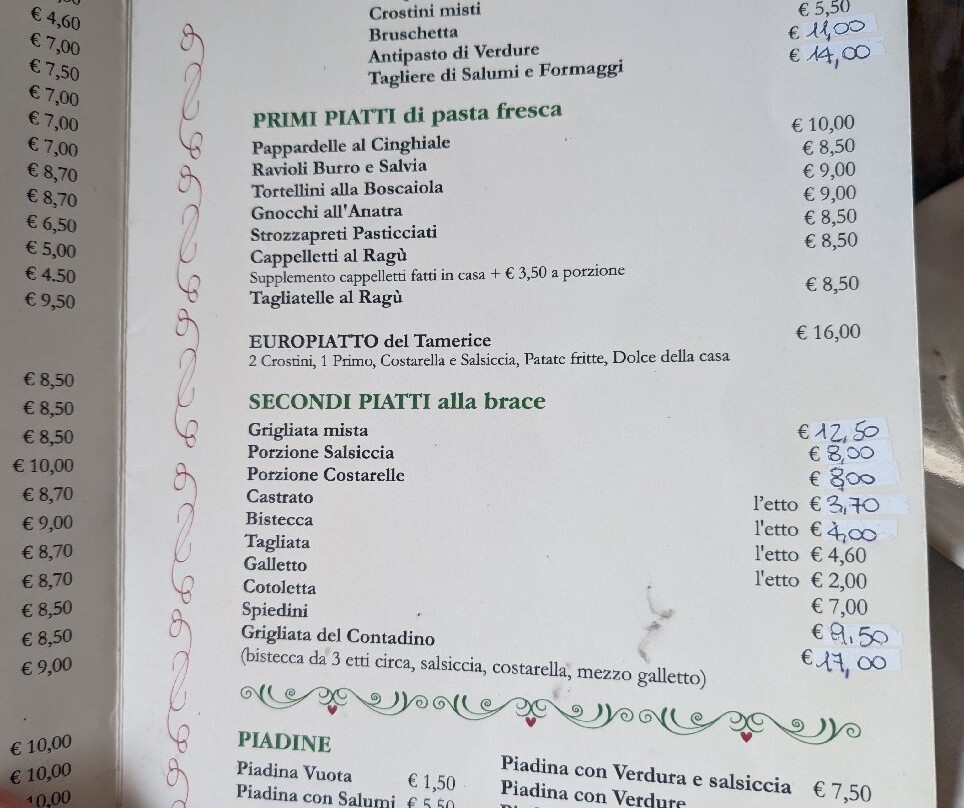 € 4,60
€ 7,00
€ 7,50
€ 7,00
€ 7,00
€ 7,00
€ 8,70
€ 8,70
€ 6,50
€ 5,00
€ 4.50
€ 9,50
€ 8,50
€ 8,50
€ 8,50
€ 10,00
€ 8,70
€ 9,00
€ 8,70
€ 8,70
€ 8,50
€ 8,50
€ 9,00
€ 10,00
€ 10,00
10,00
Crostini misti
Bruschetta € 5,50
Antipasto di Verdure € 11,00
Tagliere di Salumi e Formaggi € 14,00
PRIMI PIATTI di pasta fresca
Pappardelle al Cinghiale € 10,00
Ravioli Burro e Salvia € 8,50
Tortellini alla Boscaiola € 9,00
Gnocchi all'Anatra € 9,00
Strozzapreti Pasticciati € 8,50
Cappelletti al Ragù € 8,50
Supplemento cappelletti fatti in casa + € 3,50 a porzione
Tagliatelle al Ragù € 8,50
EUROPIATTO del Tamerice € 16,00
2 Crostini, 1 Primo, Costarella e Salsiccia, Patate fritte, Dolce della casa
SECONDI PIATTI alla brace
Grigliata mista € 12,50
Porzione Salsiccia € 8,00
Porzione Costarelle € 8,00
Castrato l'etto € 3,70
Bistecca l'etto € 4,00
Tagliata l'etto € 4,60
Galletto l'etto € 2,00
Cotoletta € 7,00
Spiedini € 9,50
Grigliata del Contadino € 17,00
(bistecca da 3 etti circa, salsiccia, costarella, mezzo galletto)
PIADINE
Piadina Vuota € 1,50
Piadina con Salumi € 5,50
Piadina con Verdura e salsiccia € 7,50
Piadina con Verdure